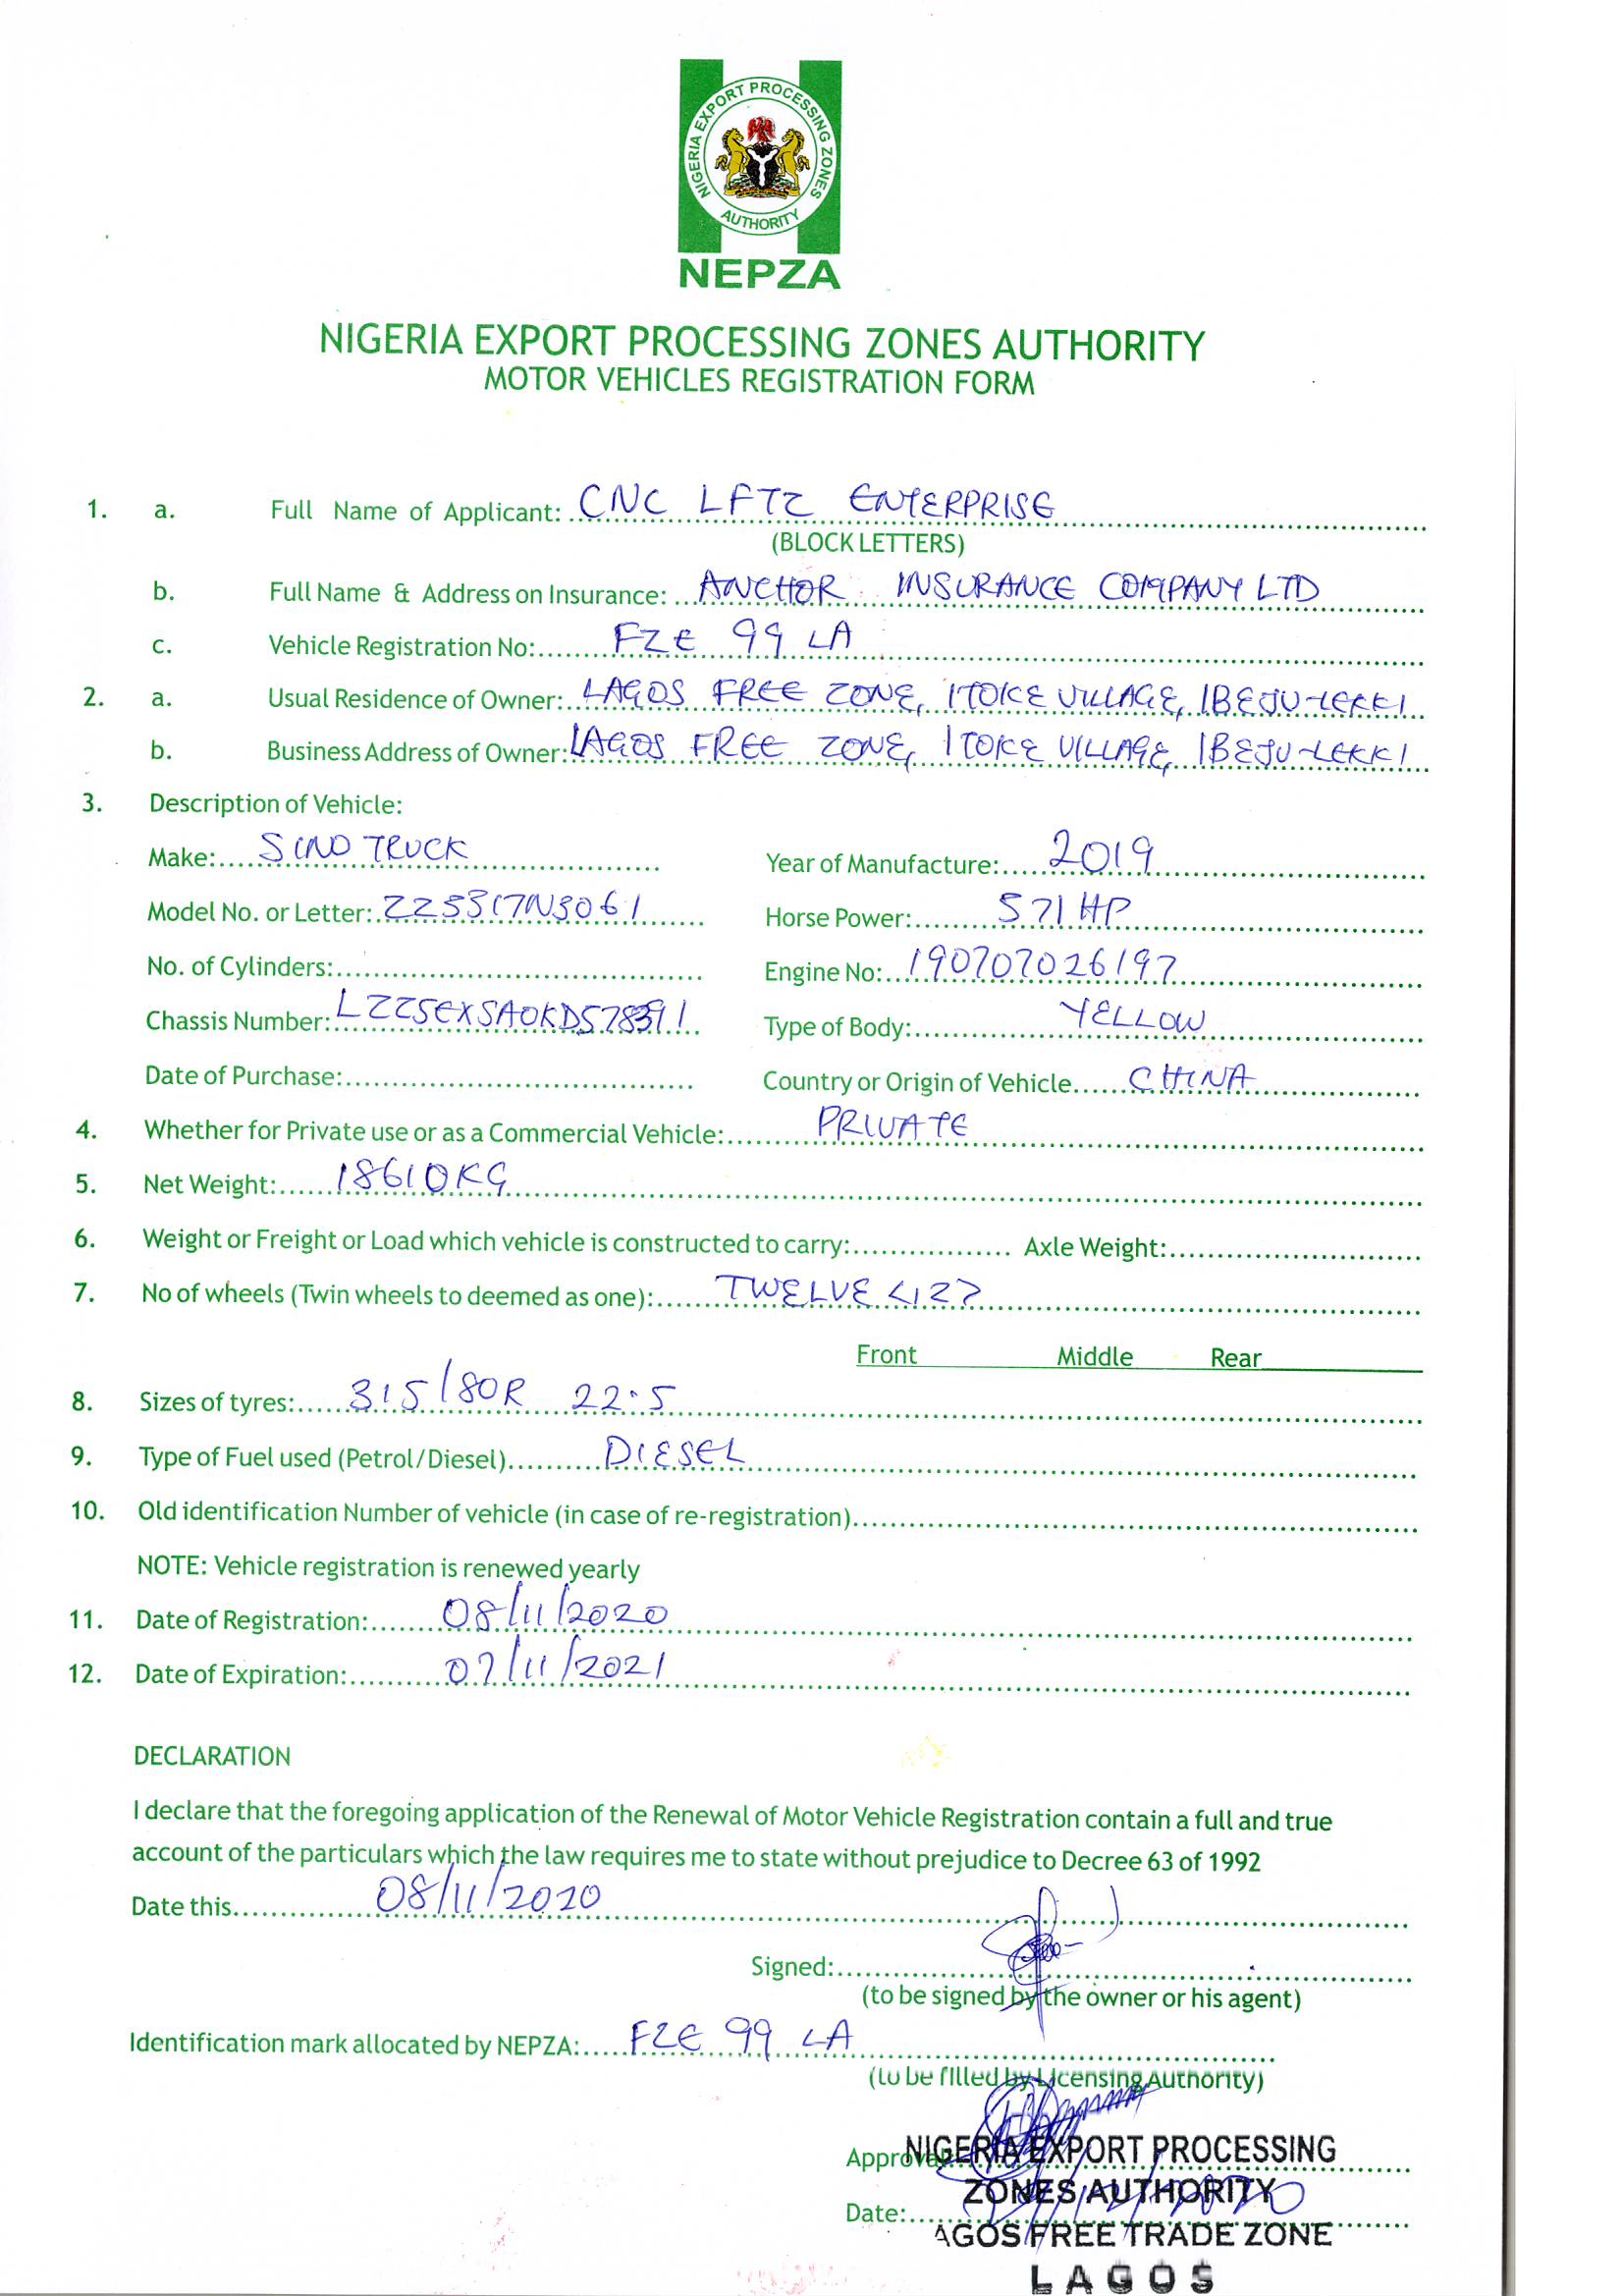 NIGERIA EXPORT PROCESSING ZONES
AUTHORITY
NEPZA
NIGERIA EXPORT PROCESSING ZONES AUTHORITY
MOTOR VEHICLES REGISTRATION FORM
1. a. Full Name of Applicant: CNC LFTZ ENTERPRISE
(BLOCK LETTERS)
b. Full Name & Address on Insurance: ANCHOR INSURANCE COMPANY LTD
c. Vehicle Registration No: FZE 99 LA
2. a. Usual Residence of Owner: LAGOS FREE ZONE, ITOKE VILLAGE, IBEJU-LEKKI
b. Business Address of Owner: LAGOS FREE ZONE, ITOKE VILLAGE, IBEJU-LEKKI
3. Description of Vehicle:
Make: SINO TRUCK Year of Manufacture: 2019
Model No. or Letter: ZZ5317N3061 Horse Power: 371 HP
No. of Cylinders: Engine No: 190707026197
Chassis Number: Type of Body: YELLOW
Date of Purchase: Country or Origin of Vehicle CHINA
4. Whether for Private use or as a Commercial Vehicle: PRIVATE
5. Net Weight: 18610KG
6. Weight or Freight or Load which vehicle is constructed to carry: Axle Weight:
7. No of wheels (Twin wheels to deemed as one): TWELVE <12>
Front Middle Rear
8. Sizes of tyres: 315/80R 22.5
9. Type of Fuel used (Petrol/Diesel) DIESEL
10. Old identification Number of vehicle (in case of re-registration)
NOTE: Vehicle registration is renewed yearly
11. Date of Registration: 08/11/2020
12. Date of Expiration: 07/11/2021
DECLARATION
I declare that the foregoing application of the Renewal of Motor Vehicle Registration contain a full and true
account of the particulars which the law requires me to state without prejudice to Decree 63 of 1992
Date this 08/11/2020
Signed:
(to be signed by the owner or his agent)
Identification mark allocated by NEPZA: FZE 99 LA
(to be filled by Licensing Authority)
NIGERIA EXPORT PROCESSING
ZONES AUTHORITY
Date:
AGOS FREE TRADE ZONE
LAGOS